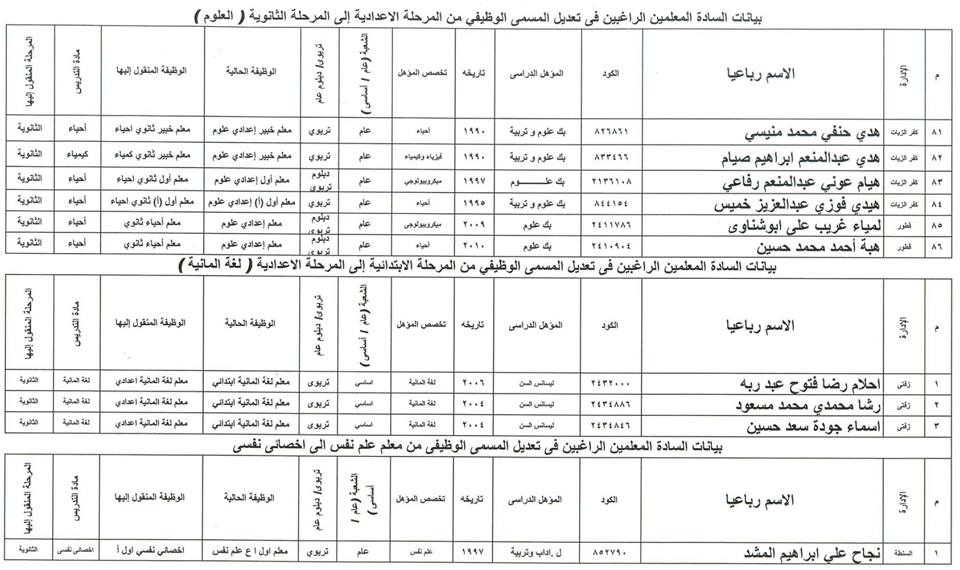 بيانات السادة المعلمين الراغبين فى تعديل المسمى الوظيفي من المرحلة الاعدادية إلى المرحلة الثانوية ( العلوم )
م الإدارة الاسم رباعيا الكود المؤهل الدراسى تاريخه تخصص المؤهل الشعبة (عام / أساسى) تربوى/ دبلوم عام الوظيفة الحالية الوظيفة المنقول إليها مادة التدريس المرحلة المنقول إليها
٨١ كفر الزيات هدي حنفي محمد منيسي ٨٢٦٨٦١ بك علوم و تربية ١٩٩٠ أحياء عام تربوي معلم خبير إعدادي علوم معلم خبير ثانوي احياء أحياء الثانوية
٨٢ كفر الزيات هدي عبدالمنعم ابراهيم صيام ٨٣٣٤٦٦ بك علوم و تربية ١٩٩٠ فيزياء وكيمياء عام تربوي معلم خبير إعدادي علوم معلم خبير ثانوي كمياء كيمياء الثانوية
٨٣ كفر الزيات هيام عوني عبدالمنعم رفاعي ٢١٣٦١٠٨ بك علـــــــوم ١٩٩٧ ميكروبيولوجي عام دبلوم تربوى معلم أول إعدادي علوم معلم أول ثانوي احياء أحياء الثانوية
٨٤ كفر الزيات هيدي فوزي عبدالعزيز خميس ٨٤٤١٥٤ بك علوم و تربية ١٩٩٥ أحياء عام تربوي معلم أول (أ) إعدادي علوم معلم أول (أ) ثانوي احياء أحياء الثانوية
٨٥ قطور لمياء غريب على ابوشناوى ٢٤١١٧٨٦ بك علوم ٢٠٠٩ ميكروبيولوجي عام دبلوم تربوى معلم إعدادي علوم معلم أحياء ثانوي أحياء الثانوية
٨٦ قطور هبة أحمد محمد حسين ٢٤١٠٩٠٤ بك علوم ٢٠١٠ أحياء عام دبلوم تربوى معلم إعدادي علوم معلم أحياء ثانوي أحياء الثانوية
بيانات السادة المعلمين الراغبين فى تعديل المسمى الوظيفي من المرحلة الابتدائية إلى المرحلة الاعدادية ( لغة المانية )
م الإدارة الاسم رباعيا الكود المؤهل الدراسى تاريخه تخصص المؤهل الشعبة (عام / أساسى) تربوى/ دبلوم عام الوظيفة الحالية الوظيفة المنقول إليها مادة التدريس المرحلة المنقول إليها
١ زفتى احلام رضا فتوح عبد ربه ٢٤٣٢٠٠٠ ليسانس السن ٢٠٠٦ لغة المانية اساسي تربوى معلم لغة المانية ابتدائي معلم لغة المانية اعدادي لغة المانية الثانوية
٢ زفتى رشا محمدي محمد مسعود ٢٤٣٤٨٨٦ ليسانس السن ٢٠٠٤ لغة المانية اساسي تربوى معلم لغة المانية ابتدائي معلم لغة المانية اعدادي لغة المانية الثانوية
٣ زفتى اسماء جودة سعد حسين ٢٤٣٤٨٤٦ ليسانس السن ٢٠٠٤ لغة المانية اساسي تربوى معلم لغة المانية ابتدائي معلم لغة المانية اعدادي لغة المانية الثانوية
بيانات السادة المعلمين الراغبين فى تعديل المسمى الوظيفى من معلم علم نفس الى اخصائى نفسى
م الإدارة الاسم رباعيا الكود المؤهل الدراسى تاريخه تخصص المؤهل الشعبة (عام / أساسى) تربوى/ دبلوم عام الوظيفة الحالية الوظيفة المنقول إليها مادة التدريس المرحلة المنقول إليها
١ السنطة نجاح علي ابراهيم المشد ٨٥٢٧٩٠ ل .اداب وتربية ١٩٩٧ علم نفس عام تربوي معلم اول ا ع علم نفس اخصائي نفسي اول أ اخصائى نفسى الثانوية